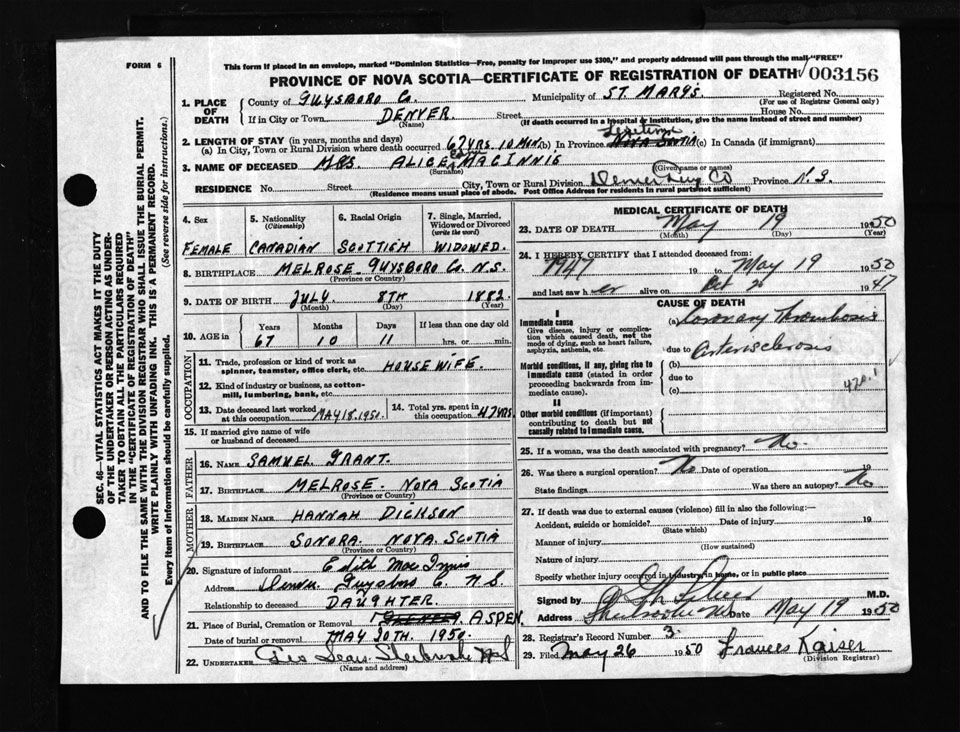 FORM 6
This form if placed in an envelope, marked "Dominion Statistics—Free, penalty for improper use $300," and properly addressed will pass through the mail "FREE"
PROVINCE OF NOVA SCOTIA—CERTIFICATE OF REGISTRATION OF DEATH 003156
1. PLACE OF DEATH
County of GUYSBORO Co. Municipality of ST. MARY'S Registered No.
(For use of Registrar General only)
If in City or Town DENVER. Street House No.
(Name) (If death occurred in a hospital or institution, give the name instead of street and number)
2. LENGTH OF STAY (in years, months and days)
(a) In City, Town or Rural Division where death occurred 67 YRS. 10 Mon. (b) In Province NOVA SCOTIA (c) In Canada (if immigrant)
3. NAME OF DECEASED MRS ALICE MACINNIS
(Surname) (Given name or names)
RESIDENCE No. Street City, Town or Rural Division Denver Guy Co Province N.S.
(Residence means usual place of abode. Post Office Address for residents in rural parts not sufficient)
4. Sex FEMALE
5. Nationality (Citizenship) CANADIAN
6. Racial Origin SCOTTISH
7. Single, Married, Widowed or Divorced (write the word) WIDOWED.
8. BIRTHPLACE MELROSE GUYSBORO Co. N.S.
(Province or Country)
9. DATE OF BIRTH JULY 8TH 1882.
(Month) (Day) (Year)
10. AGE in Years Months Days If less than one day old
67 10 11 hrs. or min.
OCCUPATION
11. Trade, profession or kind of work as spinner, teamster, office clerk, etc. HOUSEWIFE.
12. Kind of industry or business, as cotton-mill, lumbering, bank, etc.
13. Date deceased last worked at this occupation MAY 18. 1950.
14. Total yrs. spent in this occupation 47 YRS.
15. If married give name of wife or husband of deceased
FATHER
16. NAME SAMUEL GRANT.
17. BIRTHPLACE MELROSE. NOVA SCOTIA
(Province or Country)
MOTHER
18. MAIDEN NAME HANNAH DICKSON
19. BIRTHPLACE SONORA. NOVA. SCOTIA
(Province or Country)
20. Signature of informant Edith Mac Innis
Address Denver Guysboro C. N.S.
Relationship to deceased DAUGHTER.
21. Place of Burial, Cremation or Removal ASPEN.
Date of burial or removal MAY 20TH. 1950.
22. UNDERTAKER Sherbrooke NS
(Name and address)
MEDICAL CERTIFICATE OF DEATH
23. DATE OF DEATH May 19 1950
(Month) (Day) (Year)
24. I HEREBY CERTIFY that I attended deceased from:
1947 19 to May 19 1950
and last saw h er alive on Oct 26 1947
CAUSE OF DEATH
I
Immediate cause
Give disease, injury or complication which caused death, not the mode of dying, such as heart failure, asphyxia, asthenia, etc.
(a) Coronary Thrombosis
due to arteriosclerosis
Morbid conditions, if any, giving rise to immediate cause (stated in order proceeding backwards from immediate cause).
(b)
due to
(c) 420.1
II
Other morbid conditions (if important) contributing to death but not causally related to immediate cause.
25. If a woman, was the death associated with pregnancy? No.
26. Was there a surgical operation? No Date of operation 19
State findings Was there an autopsy? No
27. If death was due to external causes (violence) fill in also the following:
Accident, suicide or homicide? Date of injury 19
(State which)
Manner of injury
(How sustained)
Nature of injury
Specify whether injury occurred in industry, in home, or in public place
Signed by M.D.
Address Sherbrooke NS Date May 19 1950
28. Registrar's Record Number 3.
29. Filed May 26 1950 Frances Kaiser
(Division Registrar)
SEC. 46—VITAL STATISTICS ACT MAKES IT THE DUTY
OF THE UNDERTAKER OR PERSON ACTING AS UNDER-
TAKER TO OBTAIN ALL THE PARTICULARS REQUIRED
IN THE "CERTIFICATE OF REGISTRATION OF DEATH"
AND TO FILE THE SAME WITH THE DIVISION REGISTRAR WHO SHALL ISSUE THE BURIAL PERMIT.
WRITE PLAINLY WITH UNFADING INK. THIS IS A PERMANENT RECORD.
Every item of information should be carefully supplied. (See reverse side for instructions.)